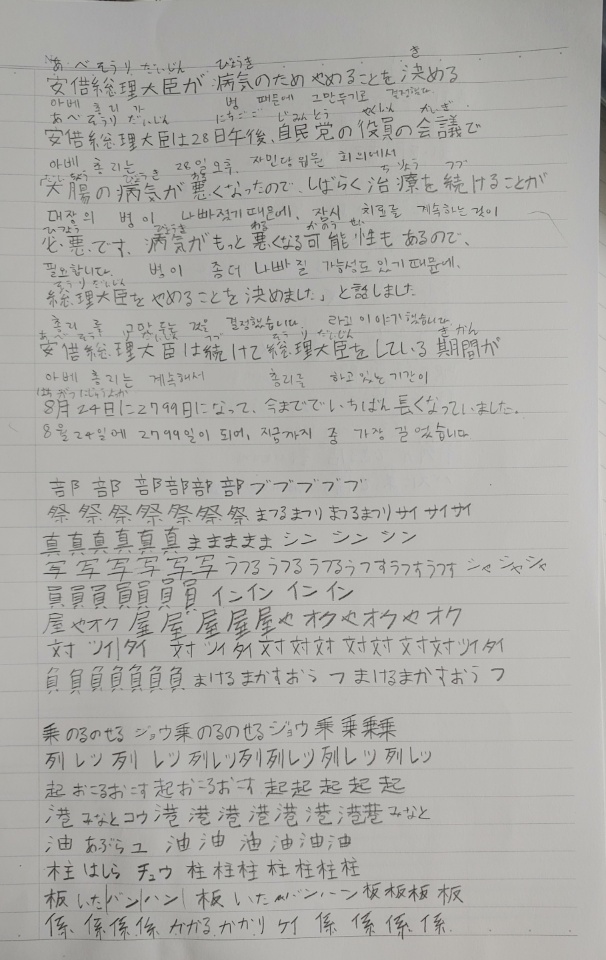 あべそうり だいじん びょうき き
安倍総理大臣が 病気のため やめることを 決める
아베 총리가 병 때문에 그만두기로 결정했다.
あべそうり だいじん にちごご じみんとう やくいん かいぎ
安倍総理大臣は28日午後、自民党の役員の会議で
아베 총리는 28일 오후, 자민당 위원 회의에서
だいちょう びょうき わる ちりょう つづ
「大腸の病気が悪くなったので、しばらく治療を続けることが
대장의 병이 나빠졌기 때문에, 잠시 치료를 계속하는 것이
ひつよう びょうき わる かのう せい
必悪です。病気がもっと悪くなる可能性もあるので、
필요합니다. 병이 좀더 나빠질 가능성도 있기 때문에,
そうり だいじん
総理大臣をやめることを決めました」と話しました
총리를 그만두는 것을 결정했습니다 라고 이야기했습니다.
あべ そうり だいじん つづ そうり だいじん きかん
安倍総理大臣は続けて総理大臣をしている期間が
아베 총리는 계속해서 총리를 하고 있는 기간이
8月24日に2799日になって、今まででいちばん長くなっていました.
8월24일에 2799일이 되어, 지금까지 중 가장 길었습니다
部 部 部部部 部 ブブブブブ
祭 祭 祭 祭 祭 祭 祭 まつるまつり まつるまつり サイ サイサイ
真真真真真真 ままままま シン シン シン
写 写 写 写 写 写 うつる うつる うつる うつす うつす うつす シャ シャ シャ
員員員 員員員 インイン イン イン
屋やオク 屋 屋 屋屋屋や オクやオクや オク
対 ツイ タイ 対 ツイ タイ 対対対 対対 対対ツイタイ
負負負負負負負 まける まかす おう フ まける まかす おう フ
乗 のるのせる ジョウ 乗 のるのせる ジョウ 乗 乗乗乗
列 レツ 列 レツ 列レツ列列列レツ 列レツ 列レツ
起 おこるおこす 起おこるおこす 起起 起 起 起
港 みなと コウ 港 港 港 港港 港 港港 みなと
油 あぶら ユ 油 油 油 油 油油
柱 はしら チュウ 柱 柱柱 柱 柱柱柱
板 いた バン ハン 板 いた バンハン 板板板 板
係 係係係 かかる かかり ケイ 係 係 係 係